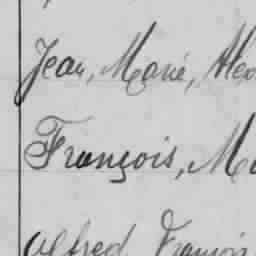 Jean, Marie, Alex
François, Ma
Alfred Franç